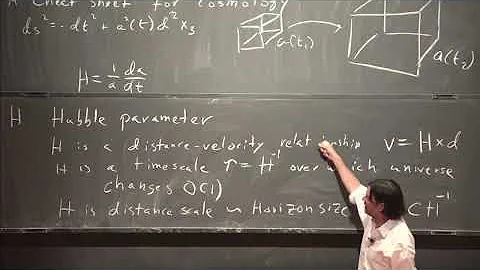 A Cheat sheet for cosmology
ds² = -dt² + a²(t) d²x₃
a(t₁)
a(t₂)
H = 1/a da/dt
H Hubble parameter
H is a distance-velocity relationship V = H×d
H is a timescale τ = H⁻¹ over which universe
changes O(1)
H is distance scale ~ Horizon size
CH⁻¹